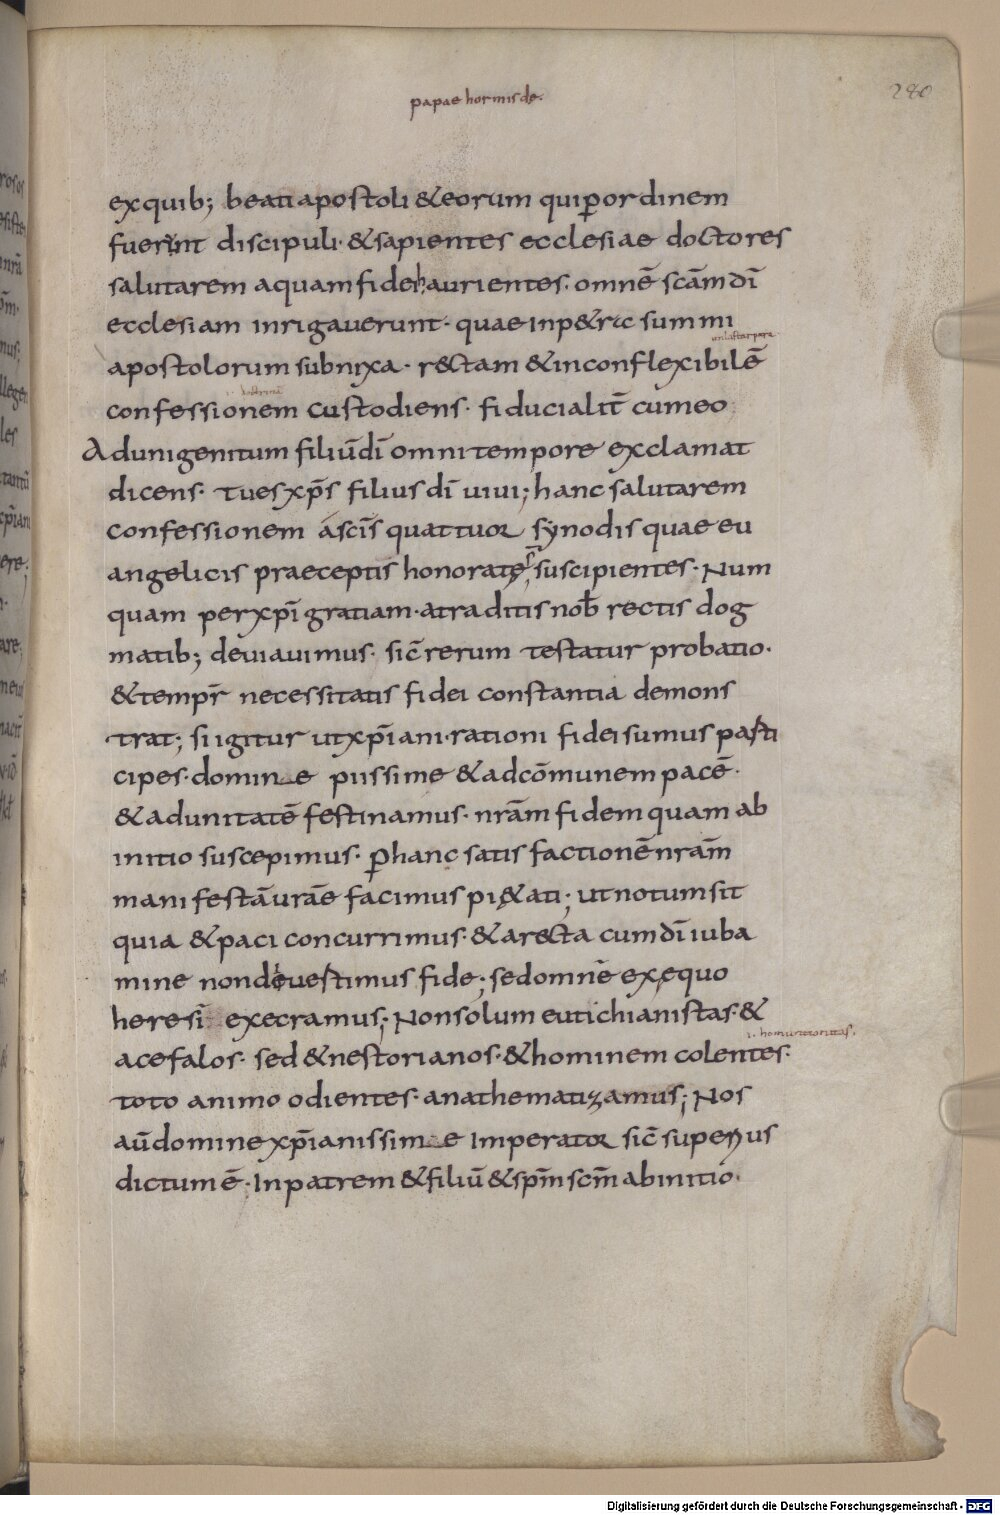 papae hormisde.
280
exquib; beati apostoli &eorum qui ꝑordinem
fuerint discipuli· &sapientes ecclesiae doctores
salutarem aquam fidei haurientes· omnē scām dī
ecclesiam inrigauerunt· quae inp&ra summi
apostolorum subnixa· r&ctam &inconflexibilē
confessionem custodiens· fiducialit̄ cum eo
Ad unigenitum filiū dī omni tempore exclamat
dicens· tu es xp̄s filius dī uiui; hanc salutarem
confessionem a scīs quattuor synodis quae eu
angelicis praeceptis honoratę suscipientes· Num
quam per xp̄i gratiam· a traditis nob̄ rectis dog
matib; deuiauimus· sic̄ rerum testatur probatio·
&tempr̄ necessitatis fidei constantia demons
trat; si igitur ut xp̄iani· rationi fidei sumus parti
cipes· domine piissime &ad cōmunem pacē·
&ad unitatē festinamus· nrām fidem quam ab
initio suscepimus· ꝑ hanc satisfactionē nrām
manifestā urāe facimus pi&ati; ut notum sit
quia &paci concurrimus· &a recta cum dī iuba
mine non deuestimus fide; sed omnē ex equo
heresī execramus; Non solum eutichianistas· &
i. homuncionitas.
acefalos· sed &nestorianos· &hominem colentes·
toto animo odientes· anathematizamus; Nos
aū domine xp̄ianissime Imperator sic̄ superius
dictum ē· In patrem &filiū &sp̄m sc̄m ab initio·
Digitalisierung gefördert durch die Deutsche Forschungsgemeinschaft - DFG